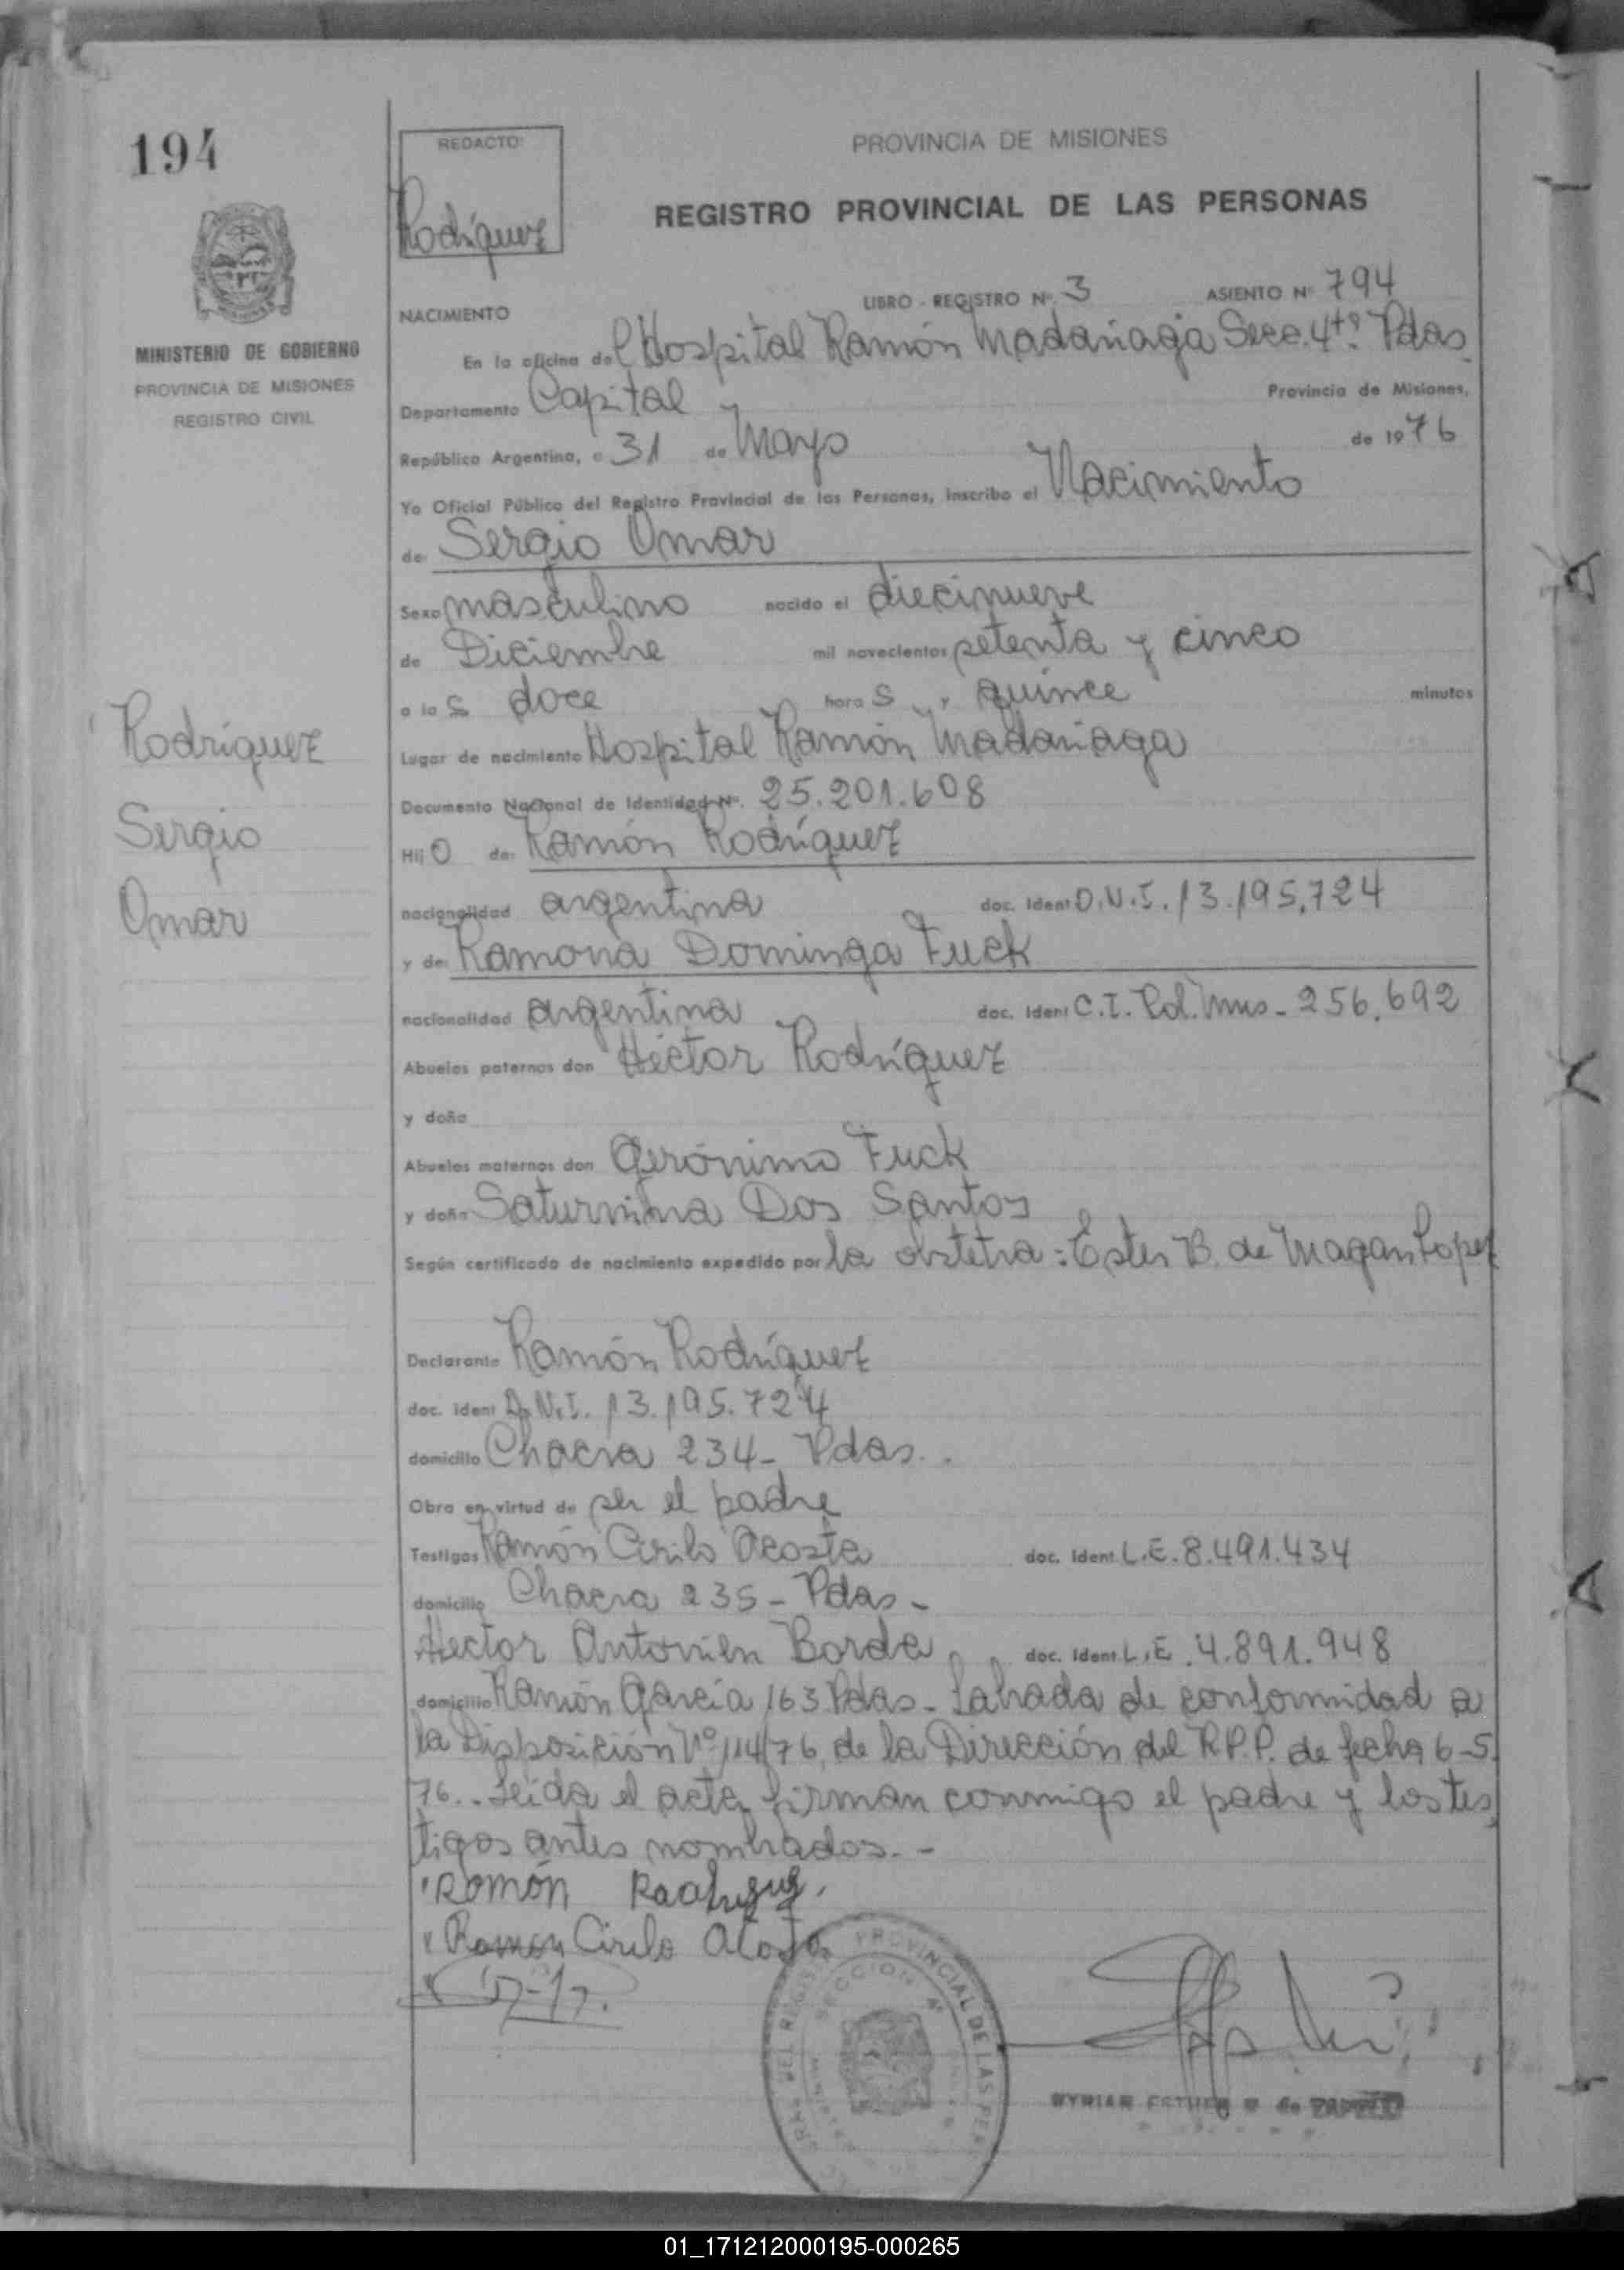 194
REDACTO:
Rodríguez
PROVINCIA DE MISIONES
REGISTRO PROVINCIAL DE LAS PERSONAS
MINISTERIO DE GOBIERNO
PROVINCIA DE MISIONES
REGISTRO CIVIL
LIBRO - REGISTRO Nº. 3 ASIENTO Nº 794
NACIMIENTO
En la oficina del Hospital Ramón Madariaga Secc. 4tª. Pdas.
Departamento Capital Provincia de Misiones,
República Argentina, a 31 de Mayo de 1976
Yo Oficial Público del Registro Provincial de las Personas, inscribo el Nacimiento
de Sergio Omar
Sexo masculino nacido el diecinueve
de Diciembre mil novecientos setenta y cinco
a las doce horas y quince minutos
Lugar de nacimiento Hospital Ramón Madariaga
Documento Nacional de Identidad Nº. 25.201.608
Hijo de: Ramón Rodríguez
nacionalidad argentina doc. Ident D.N.I. 13.195.724
y de: Ramona Dominga Fuck
nacionalidad argentina doc. Ident C.I. Pol. Mnes - 256.692
Abuelos paternos don Héctor Rodríguez
y doña
Abuelos maternos don Gerónimo Fuck
y doña Saturnina Dos Santos
Según certificado de nacimiento expedido por la obstetra: Ester B. de Magan Lopez
Rodríguez
Sergio
Omar
Declarante Ramón Rodríguez
doc. ident D.N.I. 13.195.724
domicilio Chacra 234 - Pdas.
Obra en virtud de ser el padre
Testigos Ramón Cirilo Acosta doc. Ident. L.E. 8.491.434
domicilio Chacra 235 - Pdas -
Hector Borda doc. Ident. L.E. 4.891.948
domicilio Ramón García 163 Pdas - Labrada de conformidad a
la Disposición Nº 114/76, de la Dirección del R.P.P. de fecha 6-5-
76.- Leída el acta, firman conmigo el padre y los tes
tigos antes nombrados. -
Ramón Rodriguez
Ramon Cirilo Acosta
PROVINCIAL DE LAS PER
SECCION 4ª
MYRIAM ESTHER de
01_171212000195-000265